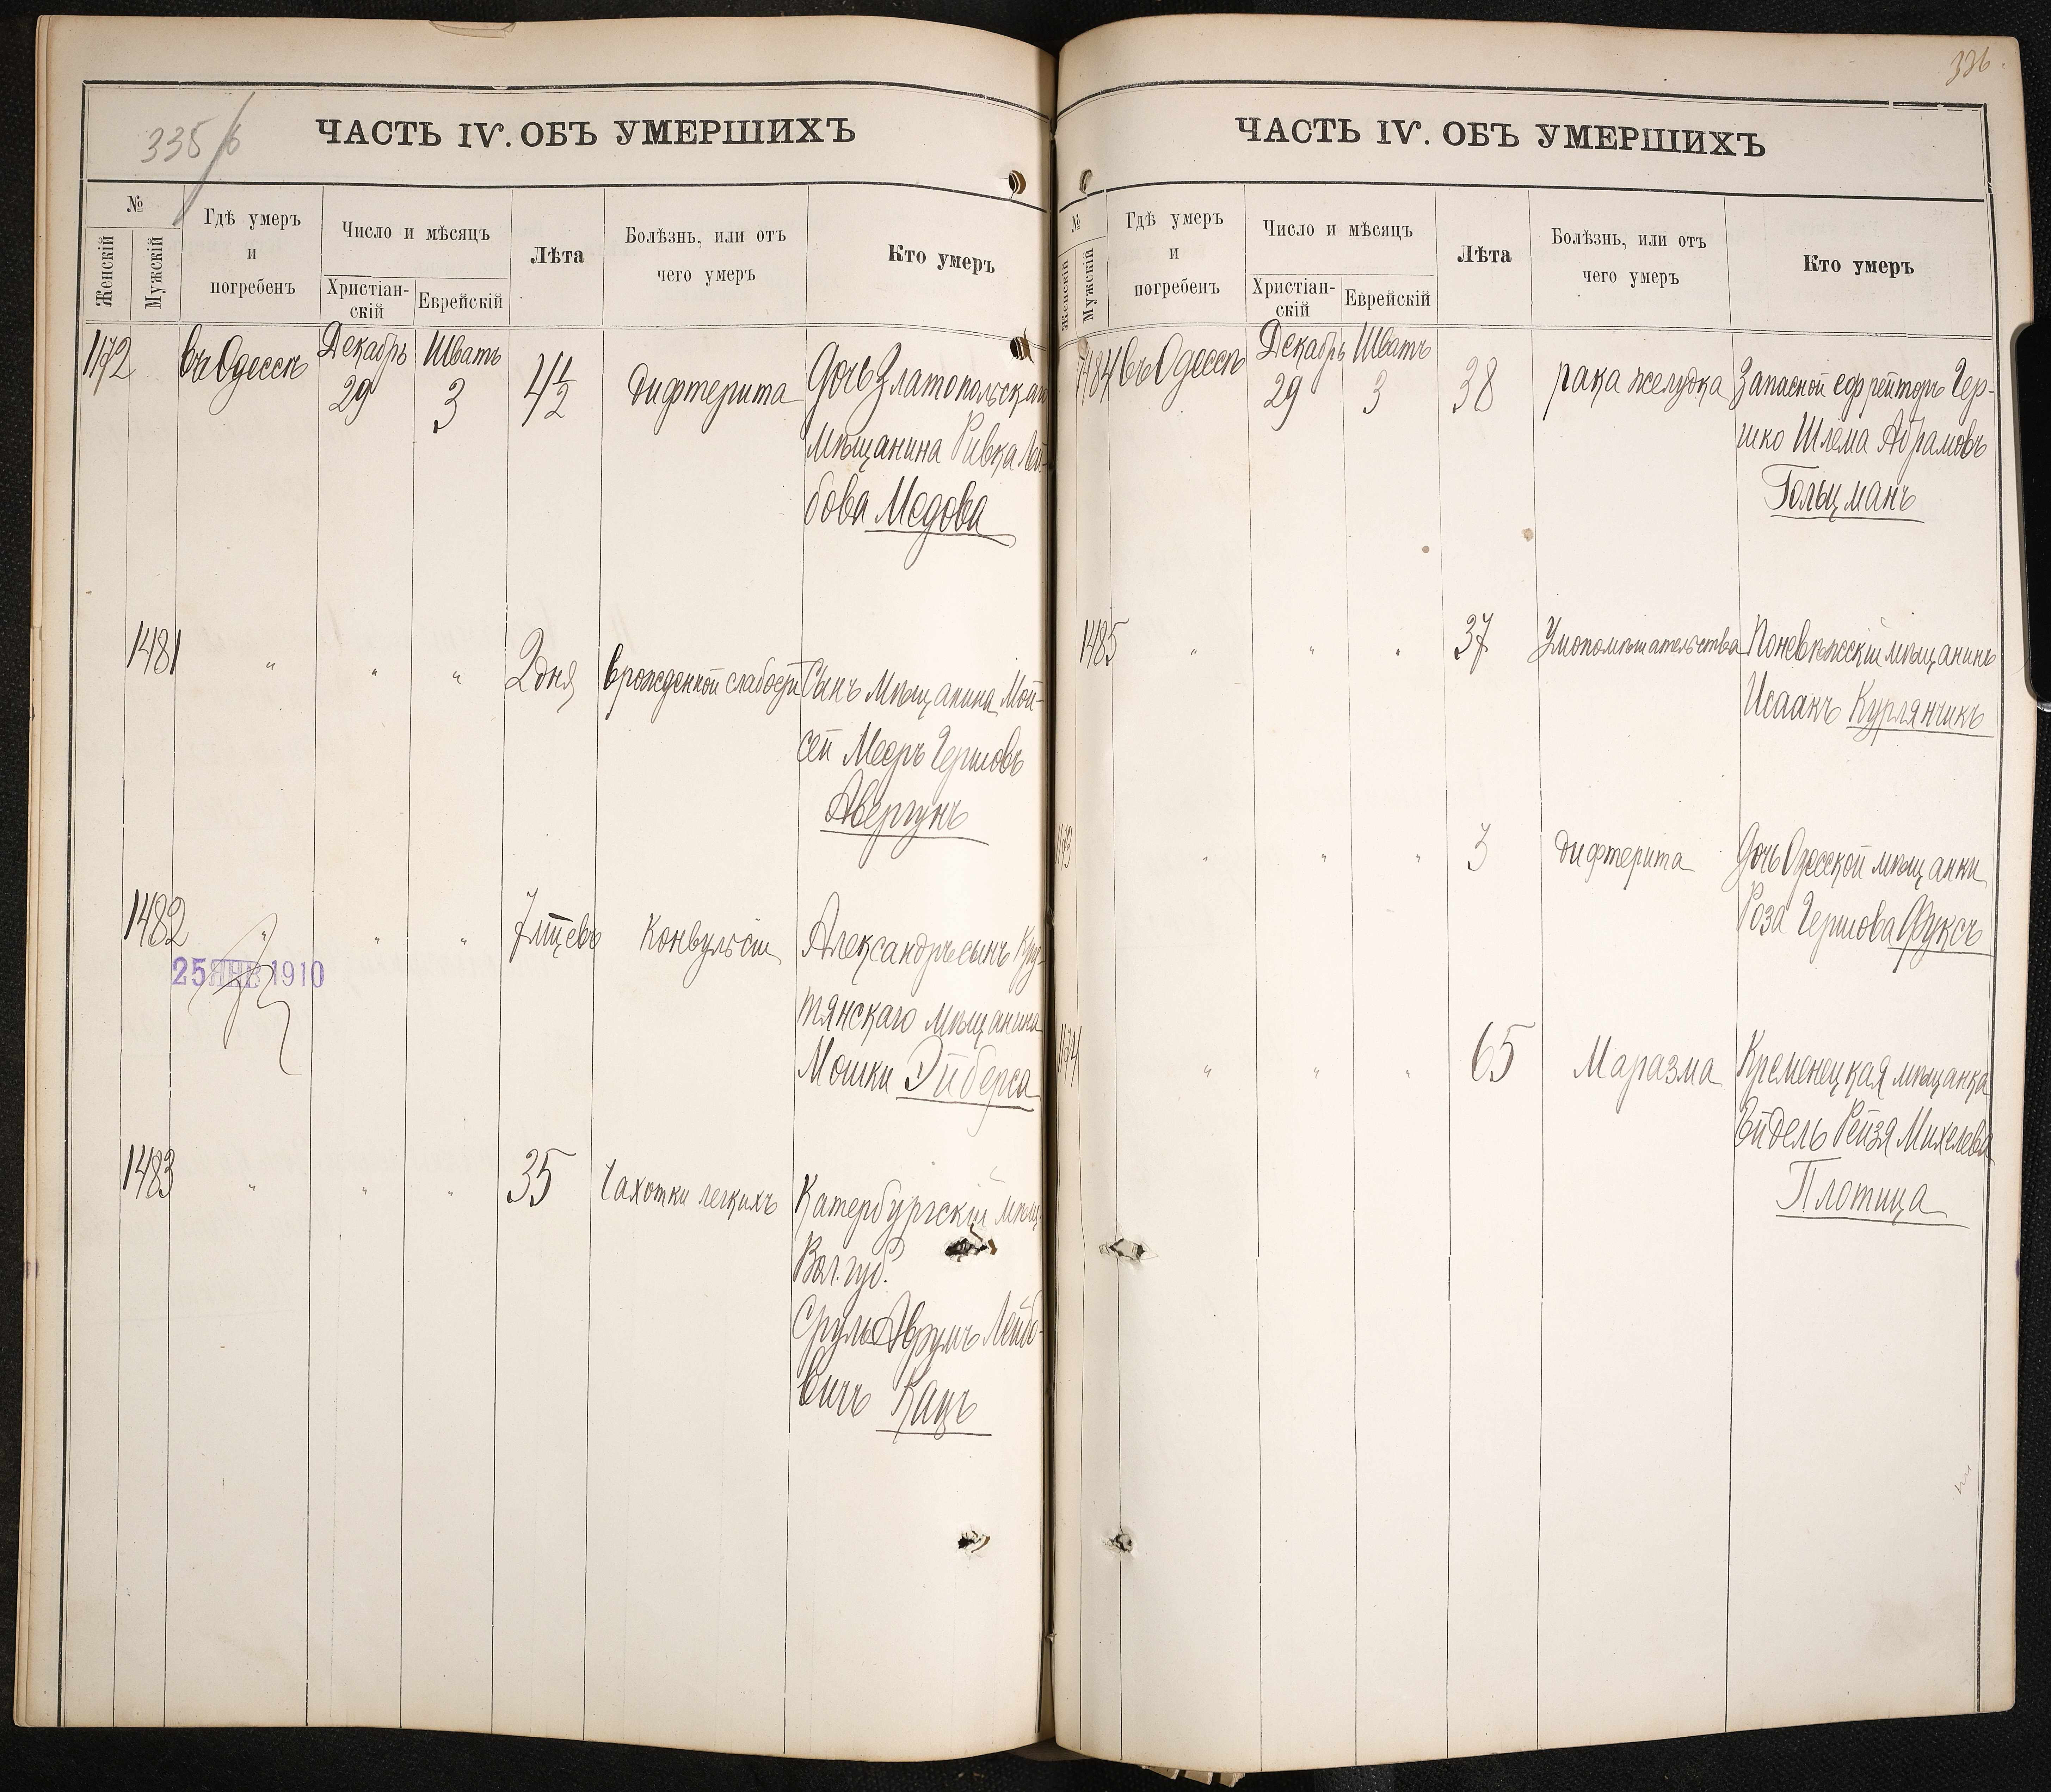 335/6
ЧАСТЬ IV. ОБЪ УМЕРШИХЪ
№
Женскій
Мужскій
Гдѣ умеръ
и
погребенъ
Число и мѣсяцъ
Христіан-
скій
Еврейскій
Лѣта
Болѣзнь, или отъ
чего умеръ
Кто умеръ
1172 въ Одессѣ Декабрь 29 Шватъ 3 4½ дифтерита Дочь Златопольскаго
мѣщанина Ривка Лей-
бова Медова
1481 " " " 2 дня врожденной слабости Сынъ мѣщанина Мой-
сей Меэръ Гершовъ
Авергунъ
1482 " " " 7 мцевъ Конвульсіи Александръ сынъ Кру-
тянскаго мѣщанина
Мошки Эйберса
25 ЯНВ 1910
1483 " " " 35 Чахотки легкихъ Катербургскій мѣщ.
Вол. губ.
Сруль Аврумъ Лейбо-
вичъ Кацъ
336.
ЧАСТЬ IV. ОБЪ УМЕРШИХЪ
№
Женскій
Мужскій
Гдѣ умеръ
и
погребенъ
Число и мѣсяцъ
Христіан-
скій
Еврейскій
Лѣта
Болѣзнь, или отъ
чего умеръ
Кто умеръ
1484 въ Одессѣ Декабрь 29 Шватъ 3 38 рака желудка Запасной ефрейторъ Гер-
шко Шлема Абрамовъ
Гольцманъ
1485 " " " 37 Умопомѣшательства Поневѣжскій мѣщанинъ
Исаакъ Курлянчикъ
1173 " " " 3 дифтерита Дочь Одесской мѣщанки
Роза Гершова Фуксъ
1174 " " " 65 Маразма Кременецкая мѣщанка
Эйдель Рейзя Михелева
Плотица